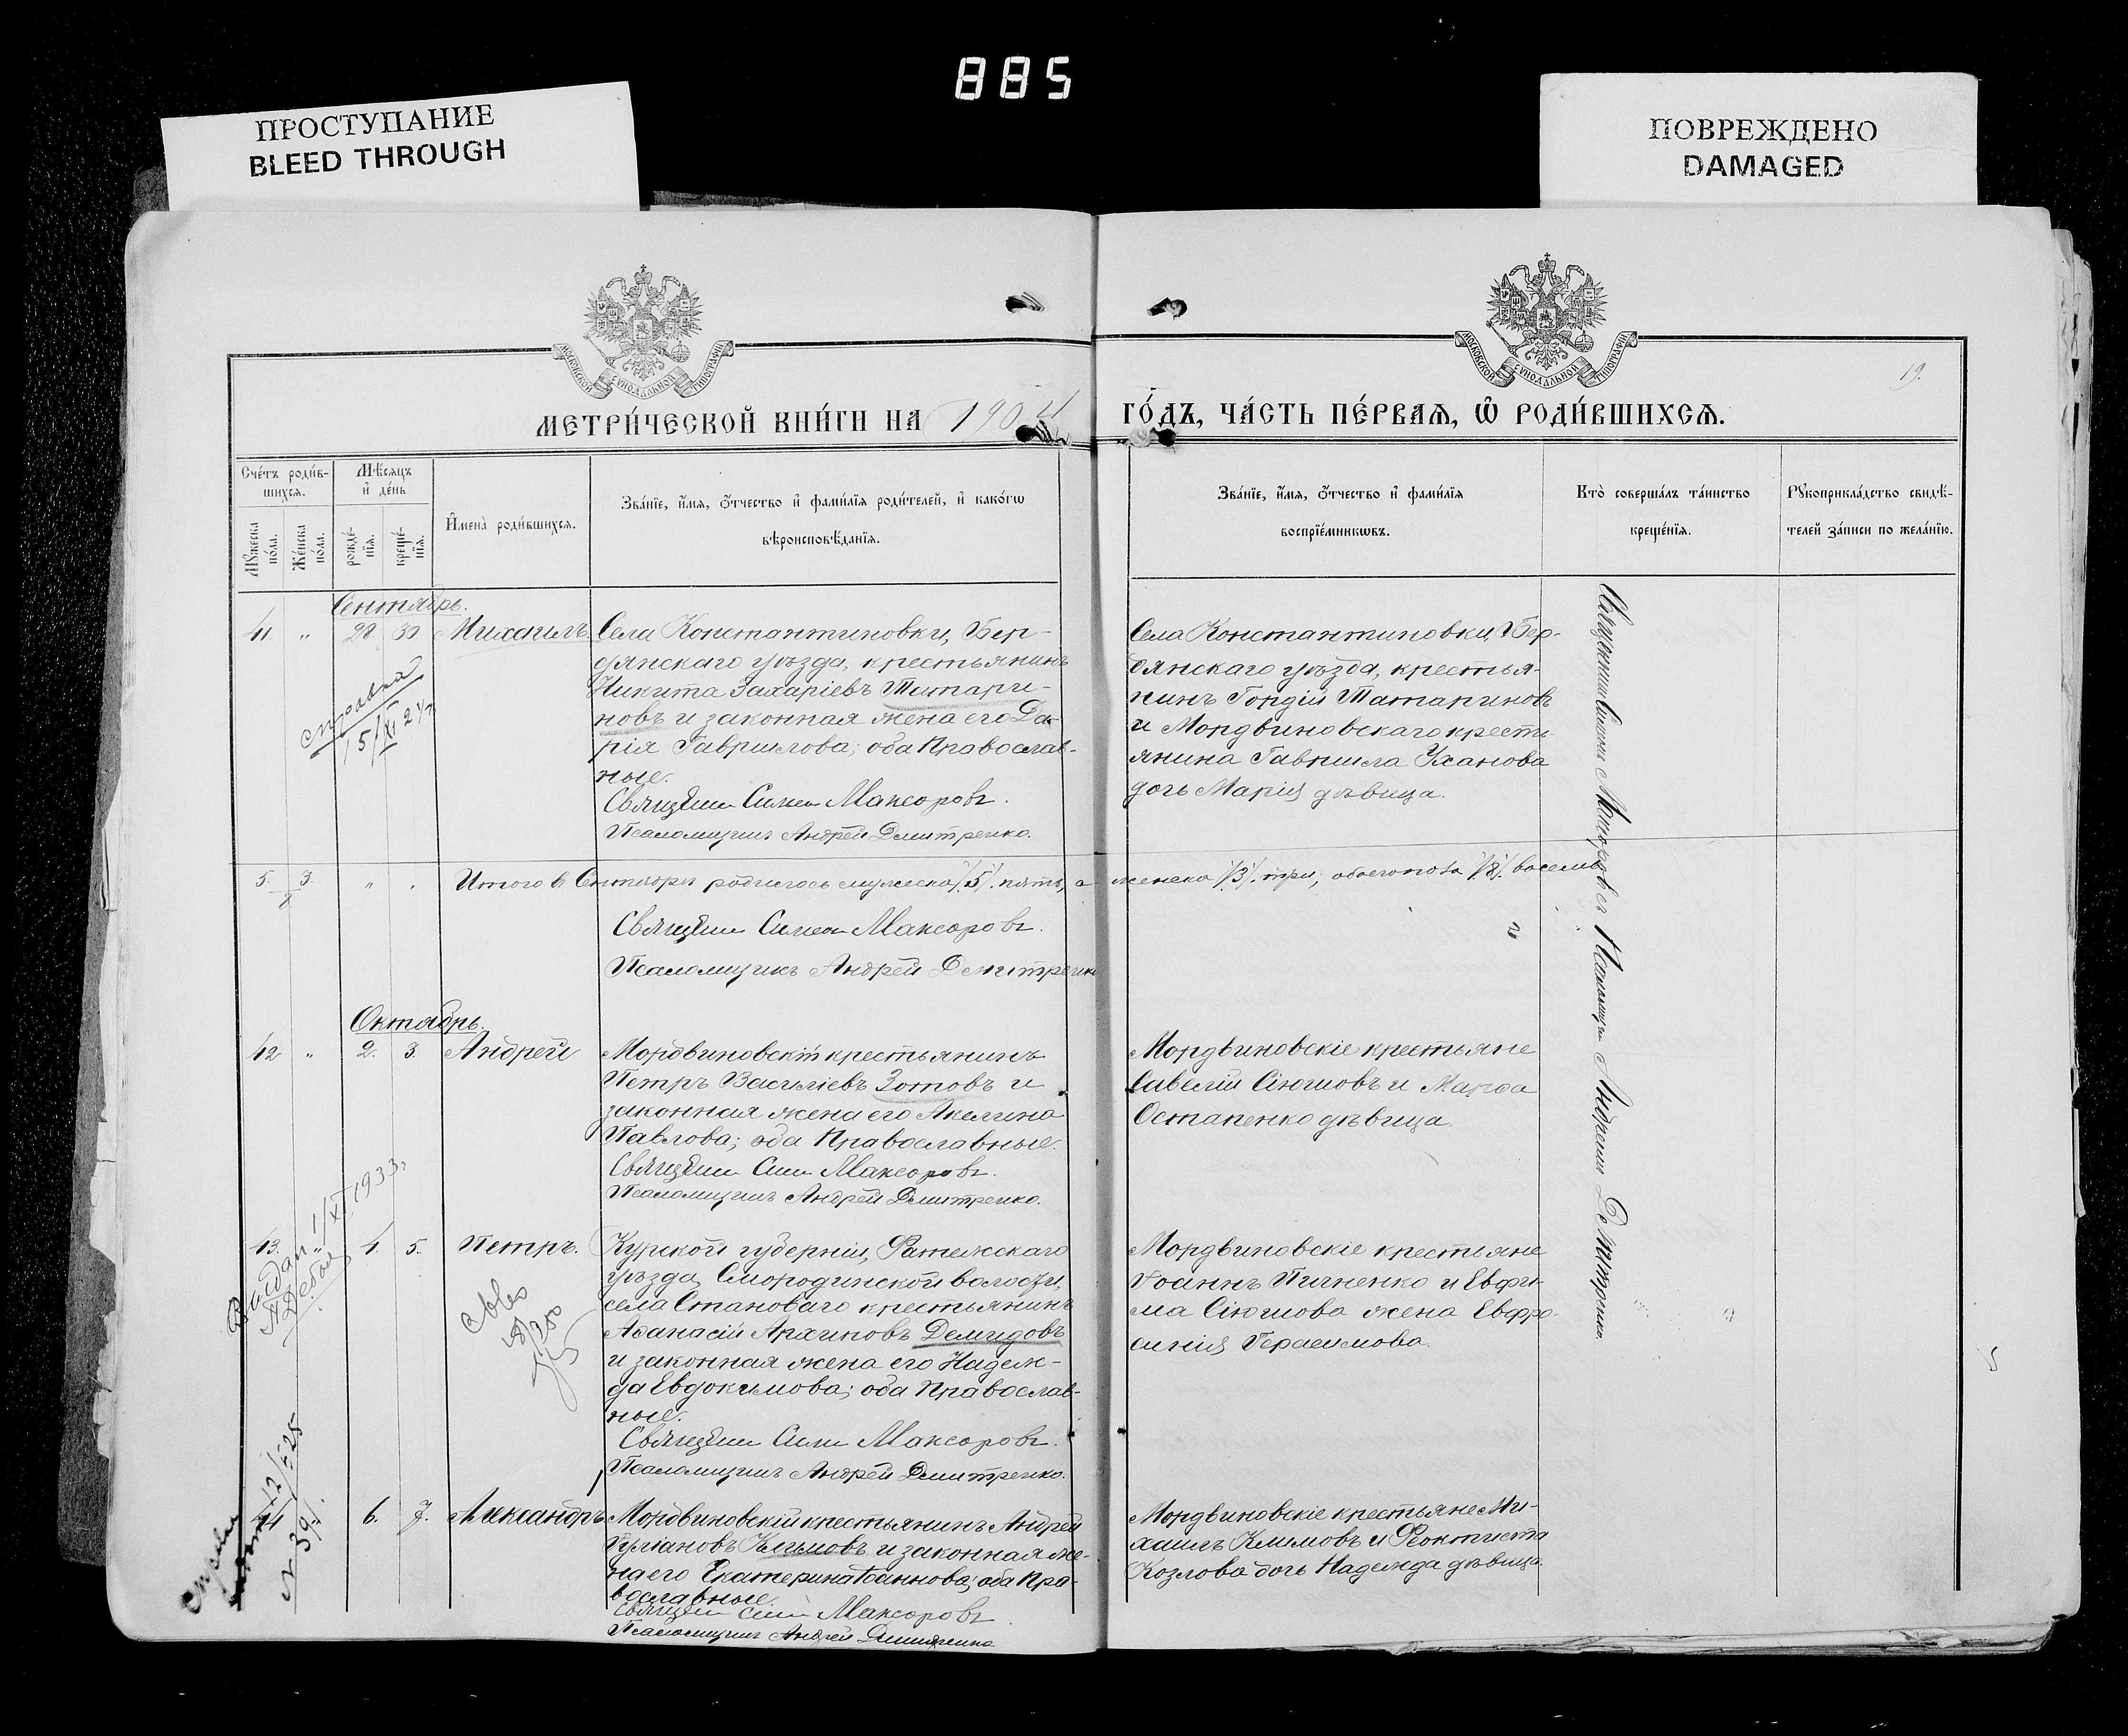 885
ПРОСТУПАНИЕ
BLEED THROUGH
ПОВРЕЖДЕНО
DAMAGED
МОСКОВСКОЙ СѴНОДАЛЬНОЙ ТИПОГРАФІИ
МОСКОВСКОЙ СѴНОДАЛЬНОЙ ТИПОГРАФІИ
19.
МЕТРИ́ЧЕСКОЙ КНИ́ГИ НА 1904
ГО́ДЪ, ЧА́СТЬ ПЕ́РВАѦ, Ѽ РОДИ́ВШИХСѦ.
Сче́тъ роди́в-
шихсѧ.
Мѣ́сѧцъ
и҆ де́нь
Мꙋ́жеска
по́ла.
Же́нска
по́ла.
рожде́-
нїѧ.
креще́-
нїѧ.
И҆мена̀ роди́вшихсѧ.
Зва́нїе, и҆́мѧ, ѻ҆́тчество и҆ фами́лїѧ роди́телей, и҆ како́гѡ
вѣроисповѣ́данїѧ.
Зва́нїе, и҆́мѧ, ѻ҆́тчество и҆ фами́лїѧ
воспрїе́мникѡвъ.
Кто̀ соверша́лъ та́инство
креще́нїѧ.
Рꙋкоприкла́дство свидѣ́-
телей за́писи по жела́нїю.
Сентябрь.
41. " 29 30 Михаилъ
Села Константиновки, Бер-
дянскаго уѣзда, крестьянинъ
Никита Захаріевъ Татари-
новъ и законная жена его Да-
рія Гаврилова; оба Православ-
ные.
Священникъ Симеонъ Максоровъ.
Псаломщикъ Андрей Дмитренко.
Села Константиновки, Бер-
дянскаго уѣзда, крестья-
нинъ Гордій Татариновъ
и Мордвиновскаго кресть-
янина Гавриила Уханова
дочь Марія дѣвица.
справка
15/XI 27
5. 3. " "
8
Итого въ Сентябрѣ родилось мужеска /5/ пять, а
женска /3/ три, обоего пола /8/ восемь
Священникъ Симеонъ Максоровъ.
Псаломщикъ Андрей Дмитренко
Октябрь.
42 " 2. 3. Андрей
Мордвиновскій крестьянинъ
Петръ Василіевъ Зотовъ и
законная жена его Акелина
Павлова; оба Православные.
Священникъ Симеонъ Максоровъ.
Псаломщикъ Андрей Дмитренко.
Мордвиновскіе крестьяне
Савелій Сіюшовъ и Марѳа
Остапенко дѣвица.
Выдан 1/XI 1933
43. " 4. 5. Петръ.
Курской губерніи, Фатежскаго
уѣзда, Смородинской волости,
села Становаго крестьянинъ
Аѳанасій Архиповъ Демидовъ
и законная жена его Надеж-
да Евдокимова; оба Православ-
ные.
Священникъ Симеонъ Максоровъ.
Псаломщикъ Андрей Дмитренко.
Мордвиновскіе крестьяне
Іоаннъ Пичненко и Евфи-
ма Сіюшова жена Евфро-
синія Герасимова.
44 6. 7. Александръ
Мордвиновскій крестьянинъ Андрей
Гуліановъ Климовъ и законная же-
на его Екатерина Іоаннова; оба Пра-
вославные.
Священникъ Симеонъ Максоровъ
Псаломщикъ Андрей Дмитренко
Мордвиновскіе крестьяне Ми-
хаилъ Климовъ и Ѳеоктиста
Козлова дочь Надежда дѣвица.
№ 391.
Священникъ Симеонъ Максоровъ съ Псаломщикомъ Андреемъ Дмитренко.